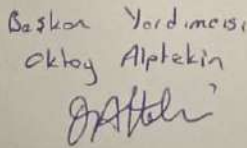 Başkan Yardımcısı
Oktay Alptekin